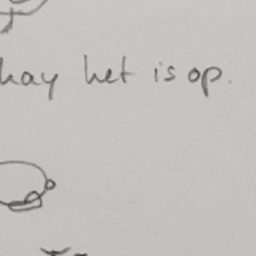 hay het is op.